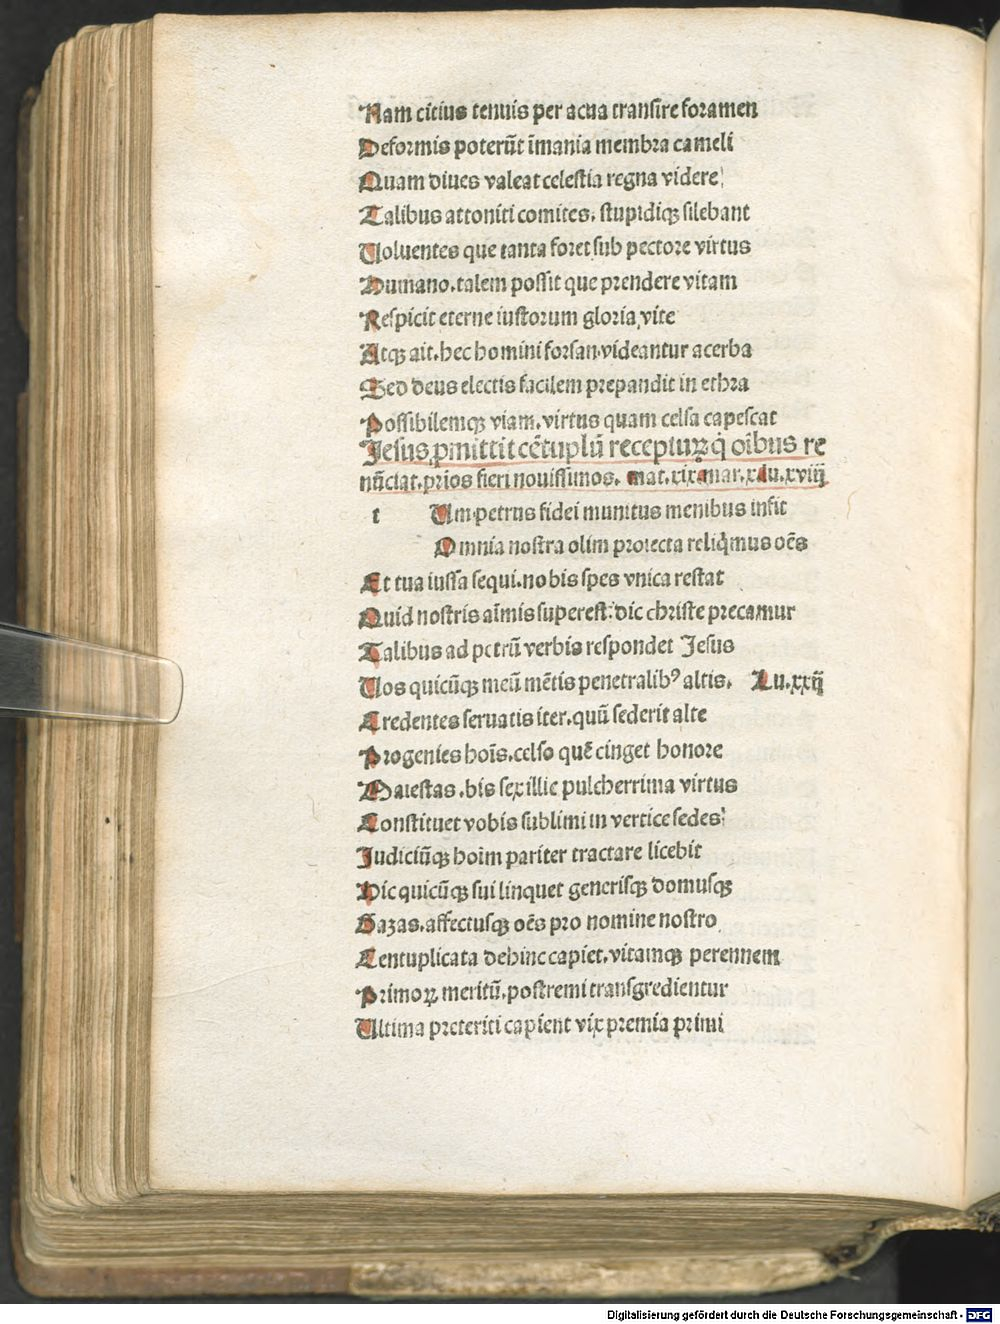 Nam citius tenuis per acua transire foramen
Deformis poterūt īmania membra cameli
Quam diues valeat celestia regna videre:
Talibus attoniti comites. stupidiqꝫ silebant
Uoluentes que tanta foret sub pectore virtus
Humano. talem possit que prendere vitam
Respicit eterne iustorum gloria vite
Atqꝫ ait. hec homini forsan videantur acerba
Sed deus electis facilem prepandit in ethra
Possibilemqꝫ viam. virtus quam celsa capescat
Jesus ꝓmittit cētuplū recepturꝝ q̇ oībus re
nūciāt. prios fieri nouissimos. mat. xix. mar. x. lu. xviij
t Um petrus fidei munitus menibus infit
Omnia nostra olim proiecta reliq̇mus oēs
Et tua iussa sequi. nobis spes vnica restat
Quid nostris aīmis superest: dic christe precamur
Talibus ad petrū verbis respondet Jesus
Uos quicūqꝫ meū mētis penetralibꝰ altis. Lu. xxij
Credentes seruatis iter. quū sederit alte
Progenies hoīs. celso quē cinget honore
Maiestas. bis sex illic pulcherrima virtus
Constituet vobis sublimi in vertice sedes:
Judiciūqꝫ hoīm pariter tractare licebit
Hic quicūqꝫ sui linquet generisqꝫ domusqꝫ
Gazas. affectusqꝫ oēs pro nomine nostro
Centuplicata dehinc capiet. vitamqꝫ perennem
Primoꝝ meritū. postremi transgredientur
Ultima preteriti capient vix premia primi
Digitalisierung gefördert durch die Deutsche Forschungsgemeinschaft - DFG